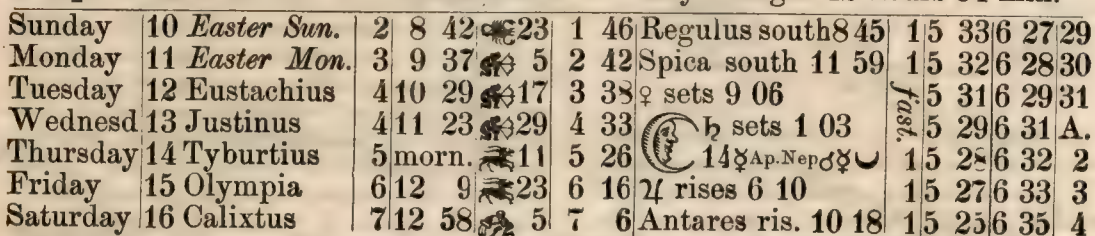 Sunday 10 Easter Sun. 2 8 42 23 1 46 Regulus south 8 45 1 5 33 6 27 29
Monday 11 Easter Mon. 3 9 37 5 2 42 Spica south 11 59 1 5 32 6 28 30
Tuesday 12 Eustachius 4 10 29 17 3 38 ♀ sets 9 06 fast. 5 31 6 29 31
Wednesd 13 Justinus 4 11 23 29 4 33 ♄ sets 1 03 5 29 6 31 A.
Thursday 14 Tyburtius 5 morn. 11 5 26 14 ☿ Ap. Nep ☌ ☿ 1 5 28 6 32 2
Friday 15 Olympia 6 12 9 23 6 16 ♃ rises 6 10 1 5 27 6 33 3
Saturday 16 Calixtus 7 12 58 5 7 6 Antares ris. 10 18 1 5 25 6 35 4